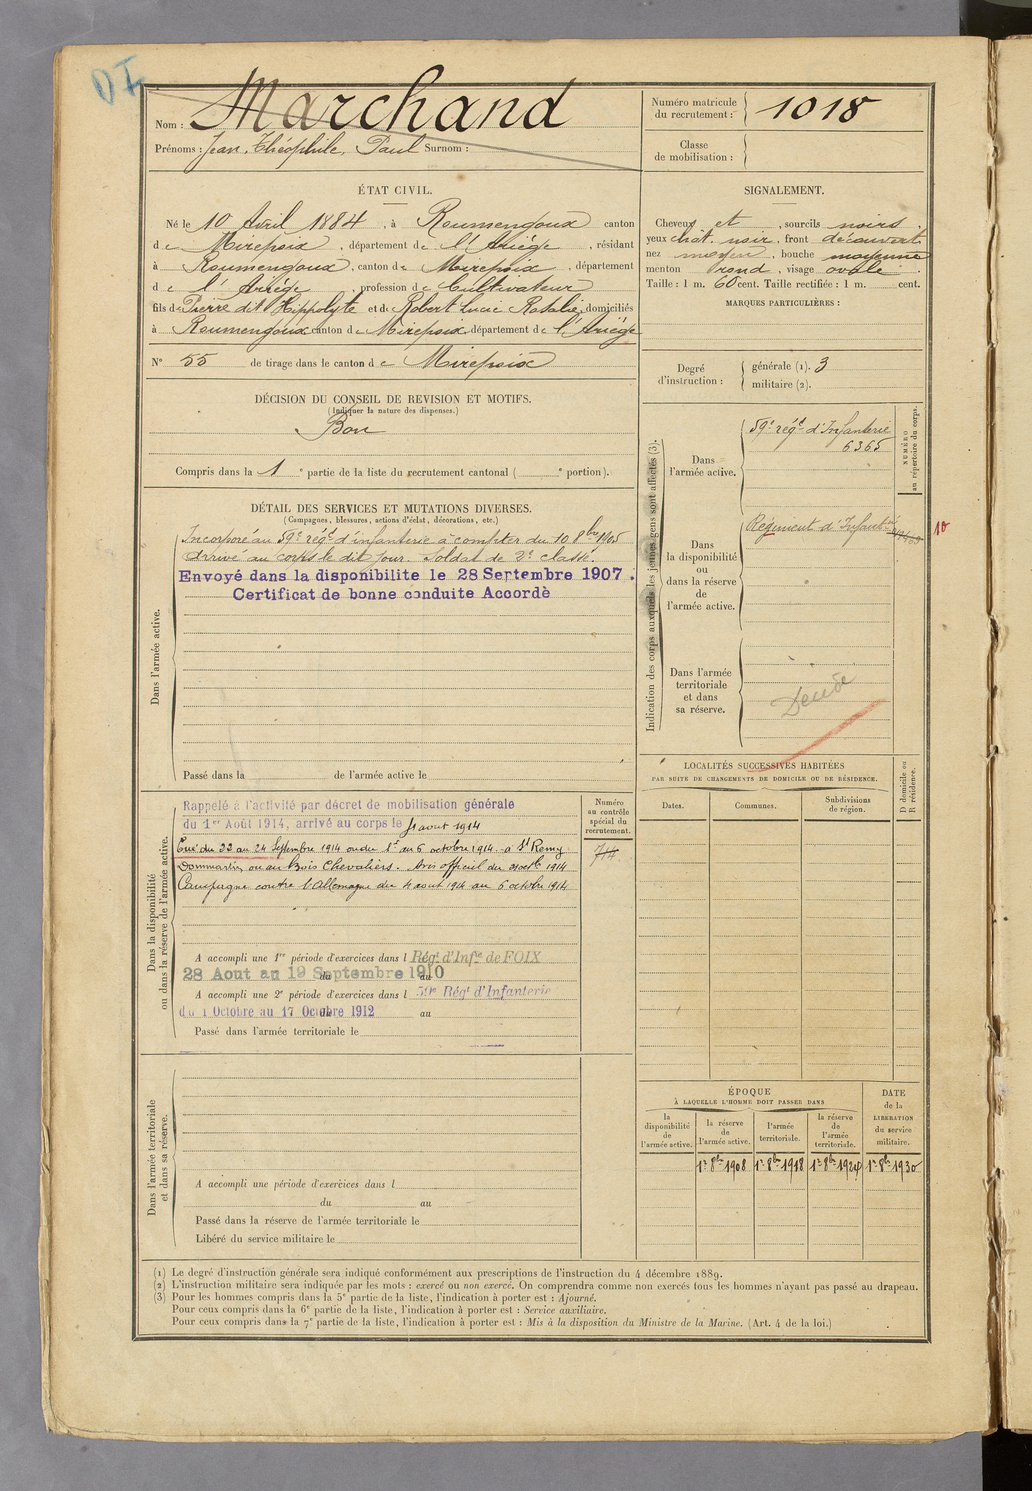 Nom : Marchand
Prénoms : Jean, Théophile, Paul Surnom :
Numéro matricule
du recrutement : 1018
Classe
de mobilisation :
ÉTAT CIVIL.
Né le 10 Avril 1884, à Roumengoux canton
de Mirepoix, département de l'Ariége, résidant
à Roumengoux, canton de Mirepoix, département
de l'Ariége, profession de Cultivateur
fils de Pierre dit Hippolyte et de Robert Lucie Rosalie, domiciliés
à Roumengoux canton de Mirepoix, département de l'Ariége
N° 55 de tirage dans le canton de Mirepoix
SIGNALEMENT.
Cheveux et, sourcils noirs.
yeux chât. noir, front découvert
nez moyen, bouche moyenne
menton rond, visage ovale.
Taille : 1 m. 60 cent. Taille rectifiée : 1 m. cent.
MARQUES PARTICULIÈRES :
Degré
d'instruction :
générale (1). 3
militaire (2).
DÉCISION DU CONSEIL DE REVISION ET MOTIFS.
(Indiquer la nature des dispenses.)
Bon
Compris dans la 1e partie de la liste du recrutement cantonal ( e portion).
DÉTAIL DES SERVICES ET MUTATIONS DIVERSES.
(Campagnes, blessures, actions d'éclat, décorations, etc.)
Dans l'armée active.
Incorporé au 59e régt d'infanterie à compter du 10 8bre 1905
Arrivé au corps le dit jour. Soldat de 2e classe.
Envoyé dans la disponibilite le 28 Septembre 1907.
Certificat de bonne conduite Accordè
Passé dans la de l'armée active le
Indication des corps auxquels les jeunes gens sont affectés (3).
NUMÉRO
au répertoire du corps.
Dans
l'armée active.
59e régt d'Infanterie
6365
Dans
la disponibilité
ou
dans la réserve
de
l'armée active.
Régiment d'Infant
10
Dans l'armée
territoriale
et dans
sa réserve.
LOCALITÉS SUCCESSIVES HABITÉES
PAR SUITE DE CHANGEMENTS DE DOMICILE OU DE RÉSIDENCE.
D domicile ou
R résidence.
Dates.
Communes.
Subdivisions
de région.
Dans la disponibilité
ou dans la réserve de l'armée active.
Numéro
au contrôle
spécial du
recrutement.
714
Rappelé à l'activité par décret de mobilisation générale
du 1er Août 1914, arrivé au corps le 4 aout 1914
Tué du 22 au 24 Septembre 1914 ou du 1er au 5 octobre 1914 à St Remy
Dommartin ou au Bois Chevaliers. Avis officiel du 1914
Campagne contre l'Allemagne du 4 aout 1914 au 5 octobre 1914
A accompli une 1re période d'exercices dans l Régt d'Infie de FOIX
28 Aout au 19 Septembre 1910 du au
A accompli une 2e période d'exercices dans l 59e Régt d'Infanterie
du 1 Octobre au 17 Octobre 1912 du au
Passé dans l'armée territoriale le
Dans l'armée territoriale
et dans sa réserve.
A accompli une période d'exercices dans l
du au
Passé dans la réserve de l'armée territoriale le
Libéré du service militaire le
ÉPOQUE
À LAQUELLE L'HOMME DOIT PASSER DANS
DATE
de la
LIBÉRATION
du service
militaire.
la
disponibilité
de
l'armée active.
la réserve
de
l'armée active.
l'armée
territoriale.
la réserve
de
l'armée
territoriale.
1er 8bre 1908 1er 8bre 1918 1er 8bre 1924 1er 8bre 1930
(1) Le degré d'instruction générale sera indiqué conformément aux prescriptions de l'instruction du 4 décembre 1889.
(2) L'instruction militaire sera indiquée par les mots : exercé ou non exercé. On comprendra comme non exercés tous les hommes n'ayant pas passé au drapeau.
(3) Pour les hommes compris dans la 5e partie de la liste, l'indication à porter est : Ajourné.
Pour ceux compris dans la 6e partie de la liste, l'indication à porter est : Service auxiliaire.
Pour ceux compris dans la 7e partie de la liste, l'indication à porter est : Mis à la disposition du Ministre de la Marine. (Art. 4 de la loi.)